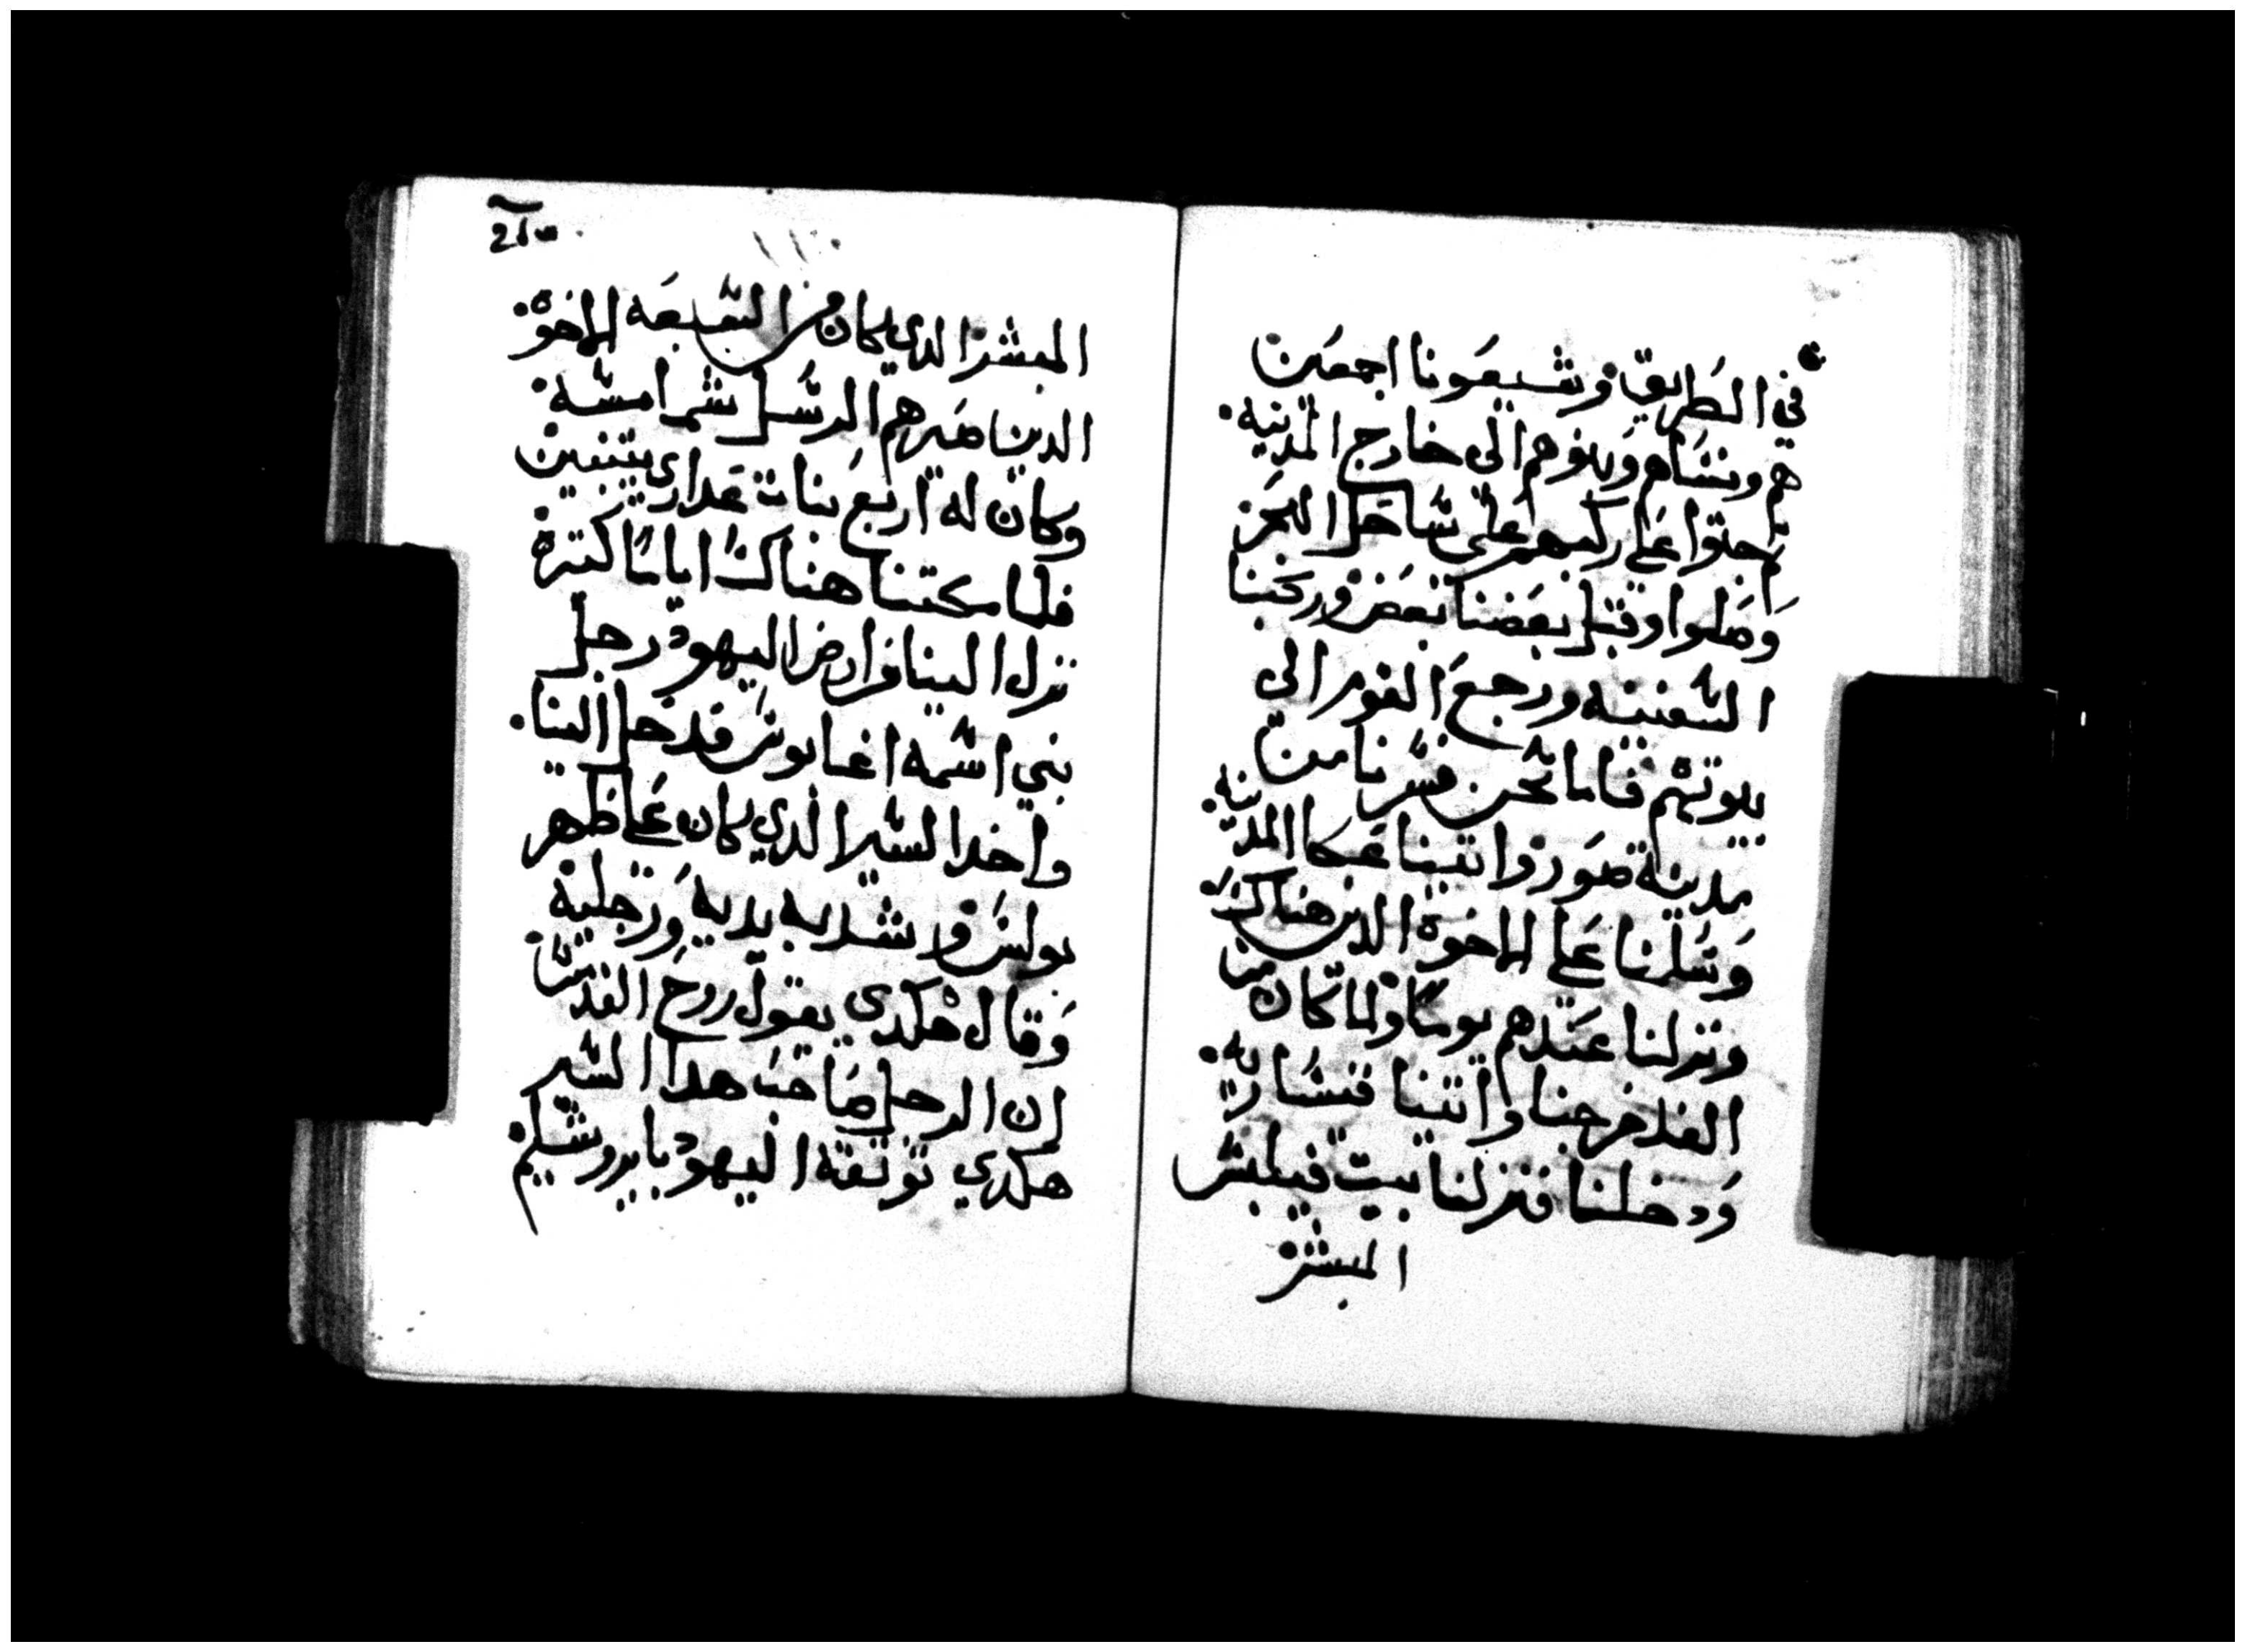 في الطريق وشيعونا اجمعين
هم ونساهم وبنوهم الى خارج المدينه
تم جتوا على ركبهم على ساحل البحر
وصلوا وقبل بعضنا بعض وركبنا
السفينه ورجع القوم الى
بيوتهم فاما نحن فسرنا من
مدينة صور واتينا عكا المدينه
وسلمنا على الاخوة الدين هناك
ونزلنا عندهم يومًا ولما كان من
الغد خرجنا واتينا قيسارية
ودخلنا فنزلنا بيت فيلبس
المبشر
المبشر الدي كان من السبعه الاخوة
الدين صيرهم الرسل شمامسه
وكان له اربع بنات عدارى يتنبين
فلما مكتنا هناك ايامًا كتيرة
نزل الينا من ارض اليهود رجل
نبي اسمه اغابوس فدخل الينا
واخد السير الدي كان على ظهر
بولس وشد به يديه ورجليه
وقال هكدى يقول روح القدس
ان الرجل صاحب هدا السير
هكدي توتقه اليهود بايروشليم